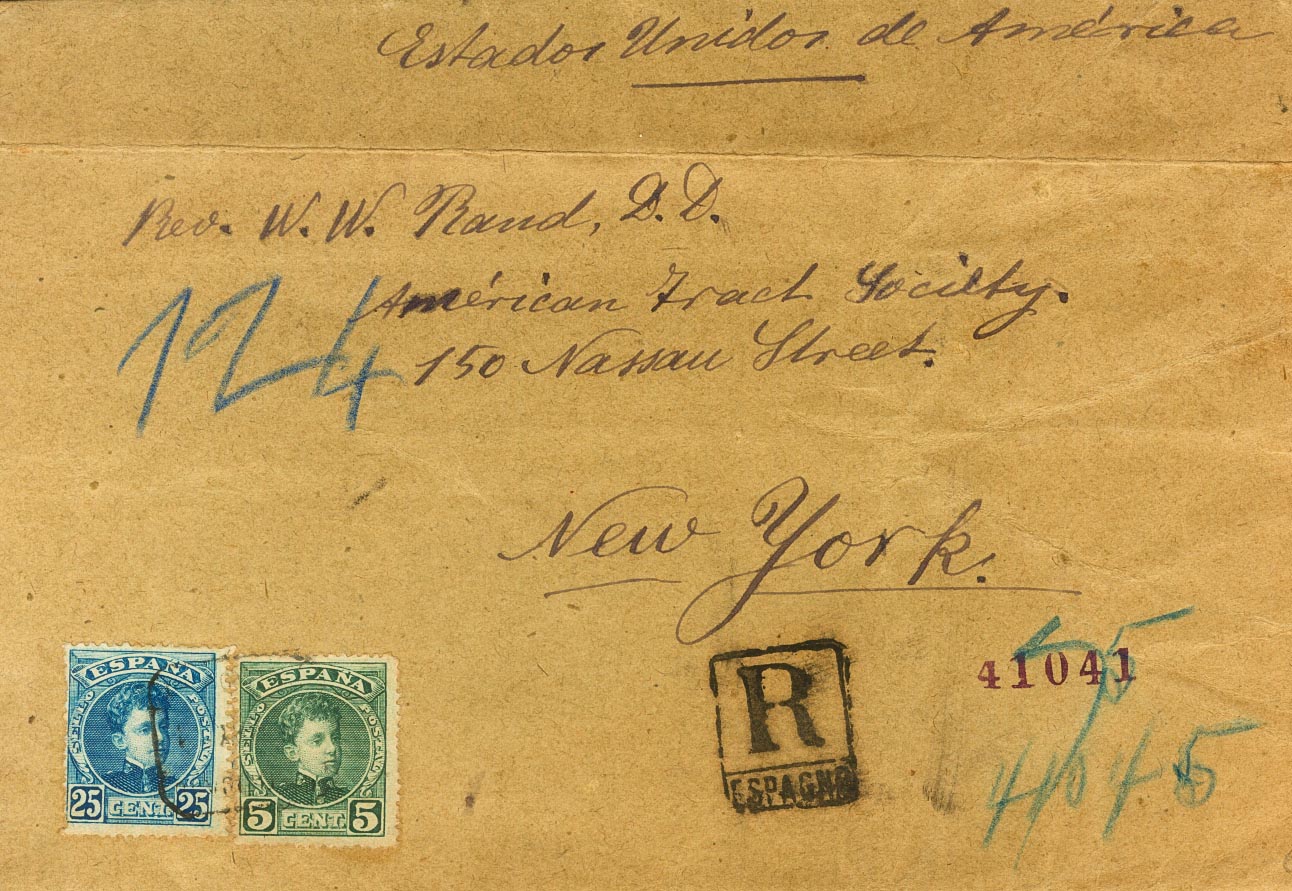 Estados Unidos de América
Rev. W. W. Rand, D. D.
Américan Tract Society.
124
150 Nassau Street.
New York.
ESPAÑA
SELLO POSTAL
25 CENT. 25
ESPAÑA
SELLO POSTAL
5 CENT. 5
R
ESPAGNE
41041